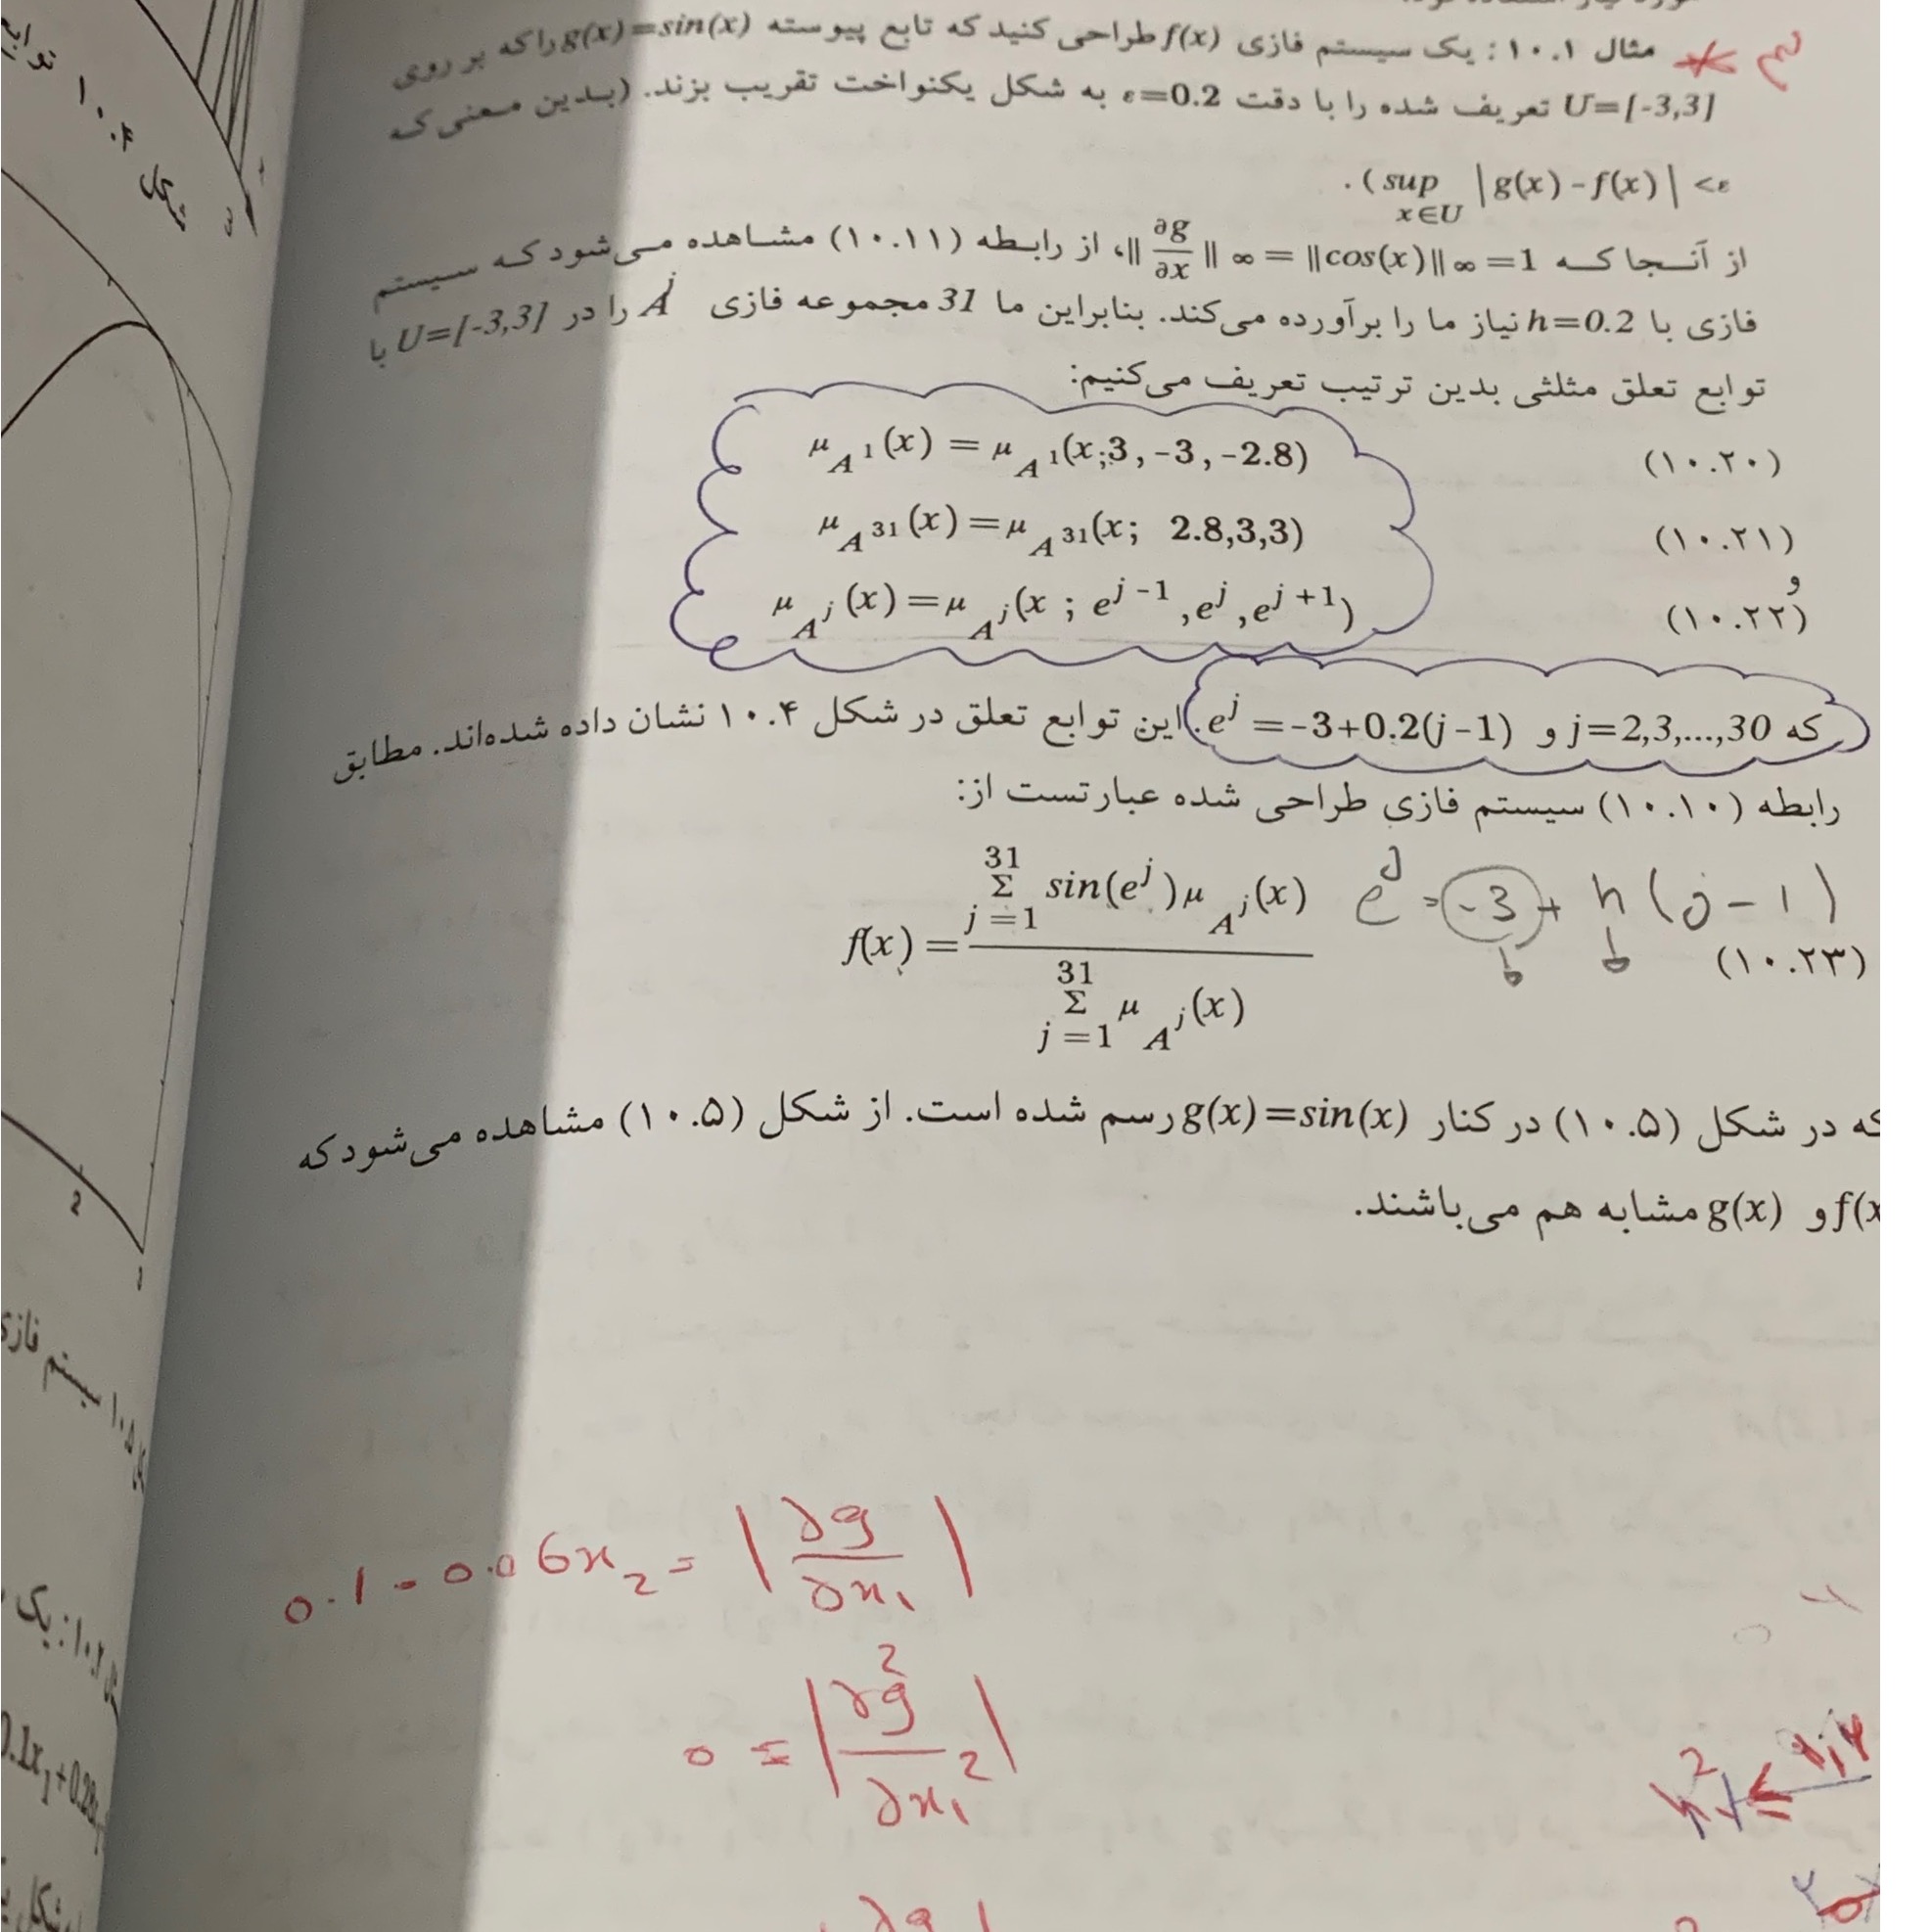 مثال ۱۰.۱ : یک سیستم فازی f(x) طراحی کنید که تابع پیوسته g(x)=sin(x) را که بر روی
U=[-3,3] تعریف شده را با دقت ε=0.2 به شکل یکنواخت تقریب بزند. (بدین معنی که
. ( sup x∈U | g(x) - f(x) | <ε
از آنجا که ‖∂g/∂x‖∞ = ‖cos(x)‖∞ =1، از رابطه (۱۰.۱۱) مشاهده می‌شود که سیستم
فازی با h=0.2 نیاز ما را برآورده می‌کند. بنابراین ما 31 مجموعه فازی A^j را در U=[-3,3] با
توابع تعلق مثلثی بدین ترتیب تعریف می‌کنیم:
μ_A^1(x) = μ_A^1(x;3,-3,-2.8) (۱۰.۲۰)
μ_A^31(x)=μ_A^31(x; 2.8,3,3) (۱۰.۲۱)
و
μ_A^j(x)=μ_A^j(x ; e^j-1 ,e^j ,e^j+1) (۱۰.۲۲)
که j=2,3,...,30 و e^j =-3+0.2(j-1). این توابع تعلق در شکل ۱۰.۴ نشان داده شده‌اند. مطابق
رابطه (۱۰.۱۰) سیستم فازی طراحی شده عبارتست از:
f(x) = Σ_{j=1}^{31} sin(e^j)μ_A^j(x) / Σ_{j=1}^{31} μ_A^j(x) (۱۰.۲۳)
e^j = -3 + h (j-1)
که در شکل (۱۰.۵) در کنار g(x)=sin(x) رسم شده است. از شکل (۱۰.۵) مشاهده می‌شود که
f(x و g(x) مشابه هم می‌باشند.
0.1 - 0.06x₂ = |∂g/∂x₁|
0 = |∂²g/∂x₁²|
شکل ۱۰.۴ توابع
3
2
1
سیستم فازی
۱۰.۲: یک
0.1x₁+0.28x₂